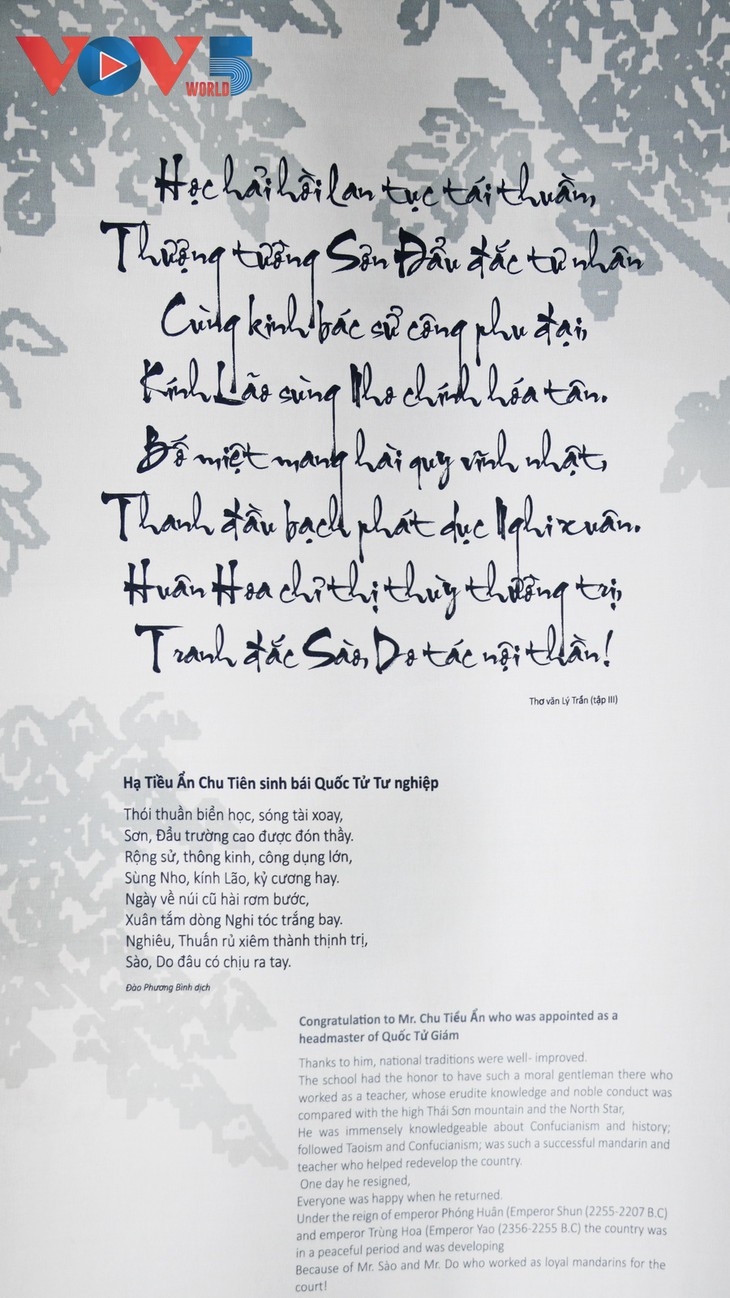 VOV5
WORLD
Học hải hồi lan tục tái thuần,
Thượng tường Sơn Đẩu đắc tư nhân
Cùng kinh bác sử công phu đại,
Kính Lão sùng Nho chính hóa tân.
Bố miệt mang hài quy vĩnh nhật,
Thanh đầu bạch phát dục Nghi xuân.
Huân Hoa chỉ thị thùy thường trị,
Tranh đắc Sào, Do tác nội thần!
Thơ văn Lý Trần (tập III)
Hạ Tiều Ẩn Chu Tiên sinh bái Quốc Tử Tư nghiệp
Thói thuần biển học, sóng tài xoay,
Sơn, Đẩu trường cao được đón thầy.
Rộng sử, thông kinh, công dụng lớn,
Sùng Nho, kính Lão, kỷ cương hay.
Ngày về núi cũ hài rơm bước,
Xuân tắm dòng Nghi tóc trắng bay.
Nghiêu, Thuấn rủ xiêm thành thịnh trị,
Sào, Do đâu có chịu ra tay.
Đào Phương Bình dịch
Congratulation to Mr. Chu Tiểu Ẩn who was appointed as a
headmaster of Quốc Tử Giám
Thanks to him, national traditions were well- improved.
The school had the honor to have such a moral gentleman there who
worked as a teacher, whose erudite knowledge and noble conduct was
compared with the high Thái Sơn mountain and the North Star,
He was immensely knowledgeable about Confucianism and history;
followed Taoism and Confucianism; was such a successful mandarin and
teacher who helped redevelop the country.
One day he resigned,
Everyone was happy when he returned.
Under the reign of emperor Phóng Huân (Emperor Shun (2255-2207 B.C)
and emperor Trùng Hoa (Emperor Yao (2356-2255 B.C) the country was
in a peaceful period and was developing
Because of Mr. Sào and Mr. Do who worked as loyal mandarins for the
court!